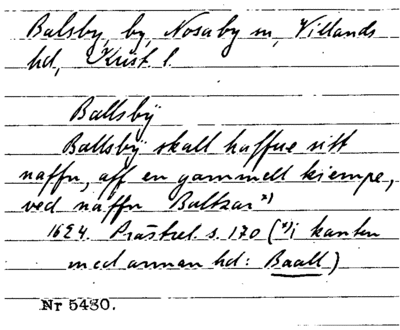 Balsby, by, Nosaby sn, Villands
hd, Krist l.
Ballsbÿ
Ballsbÿ skall haffue sitt
naffn, aff en gammell kiempe,
ved naffn Baltzar *)
1624. Prästrel. s. 170 (*) i kanten
med annan hd: Baall)
Nr 5480.